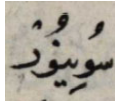 سُوِينُورْ